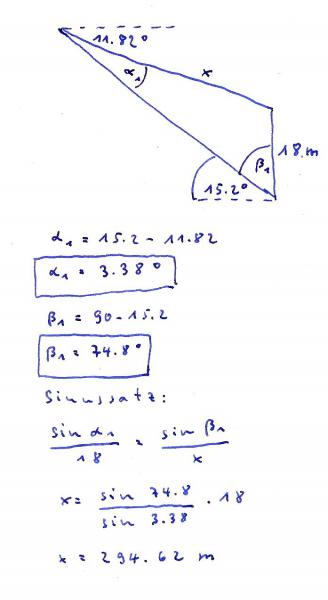 11.82°
α₁
x
18 m
β₁
15.2°
α₁ = 15.2 - 11.82
α₁ = 3.38°
β₁ = 90 - 15.2
β₁ = 74.8°
Sinussatz:
sin α₁ / 18 = sin β₁ / x
x = sin 74.8 / sin 3.38 · 18
x = 294.62 m